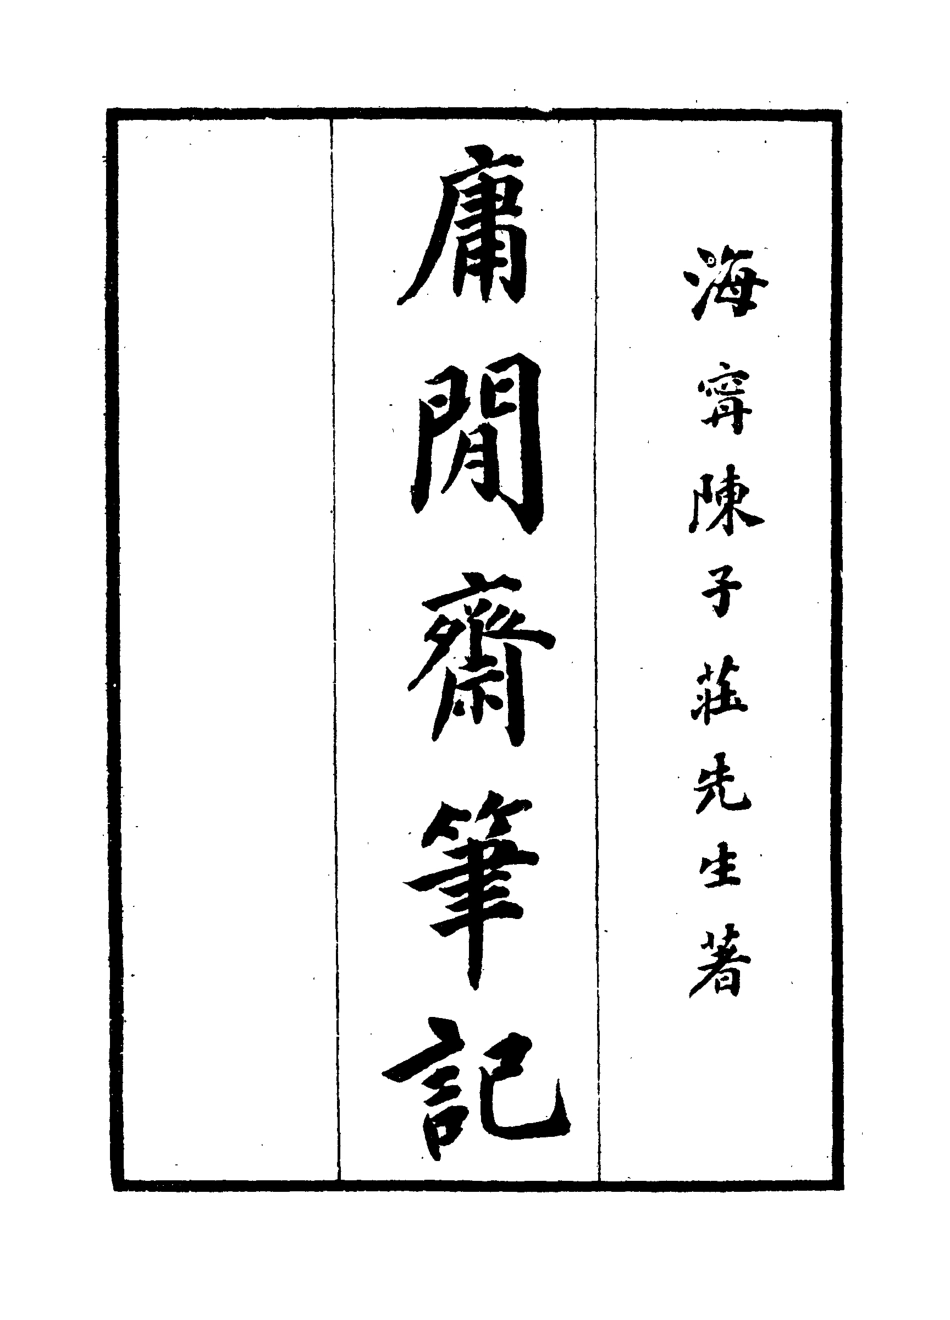 海甯陳子莊先生著
庸閒齋筆記